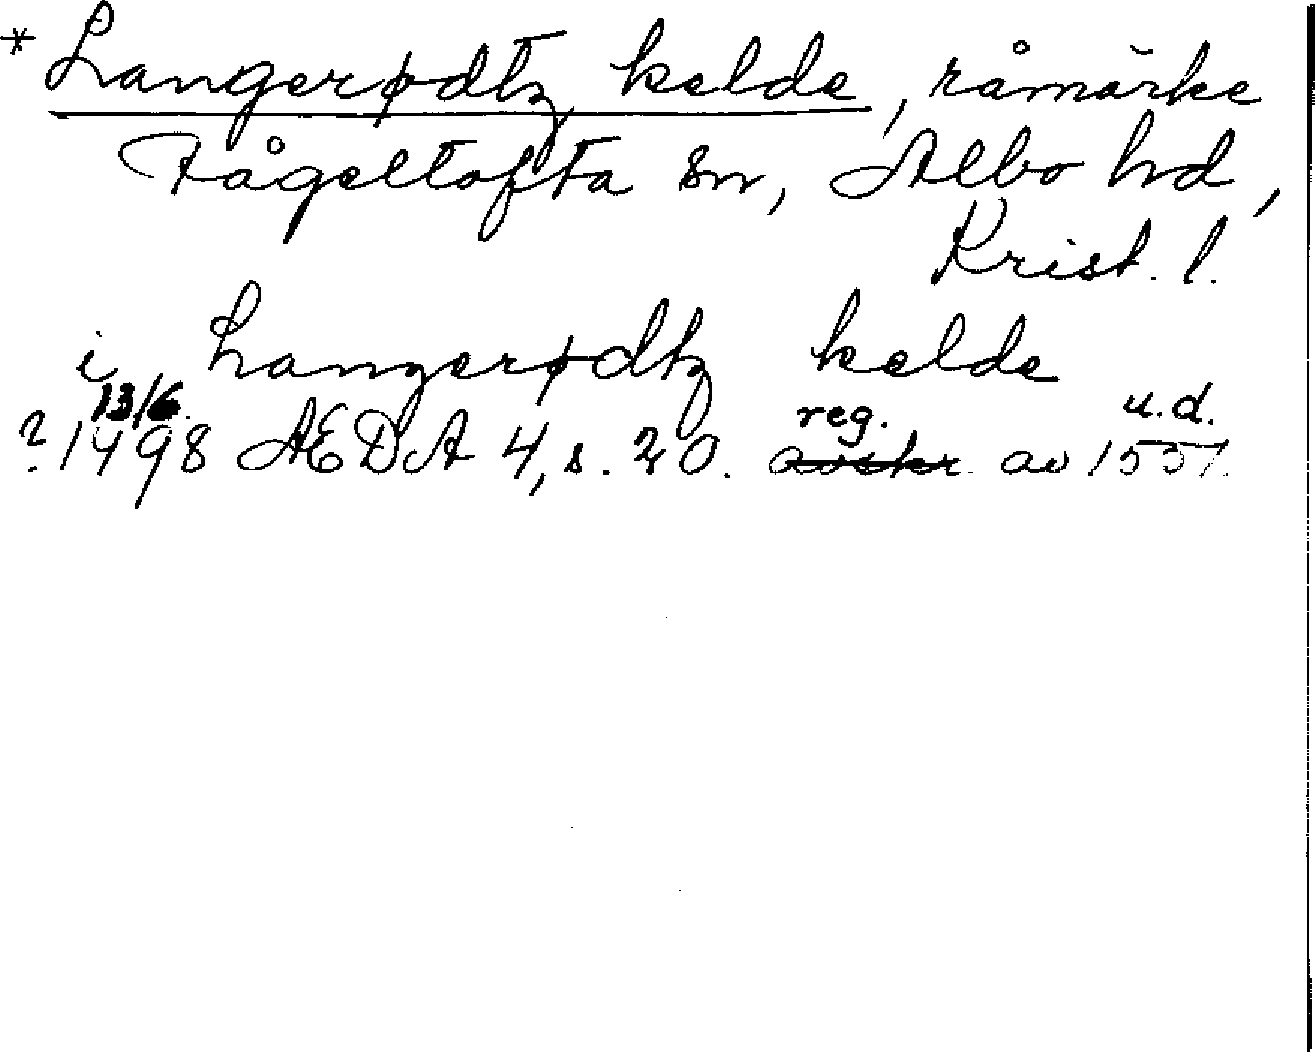 *Langerødtz kelde, råmärke
Fågeltofta sn, Albo hd,
Krist. l.
i Langerødtz kelde
13/6. reg. u.d.
?1498 AEDA 4, s. 20. avskr. av 1551.